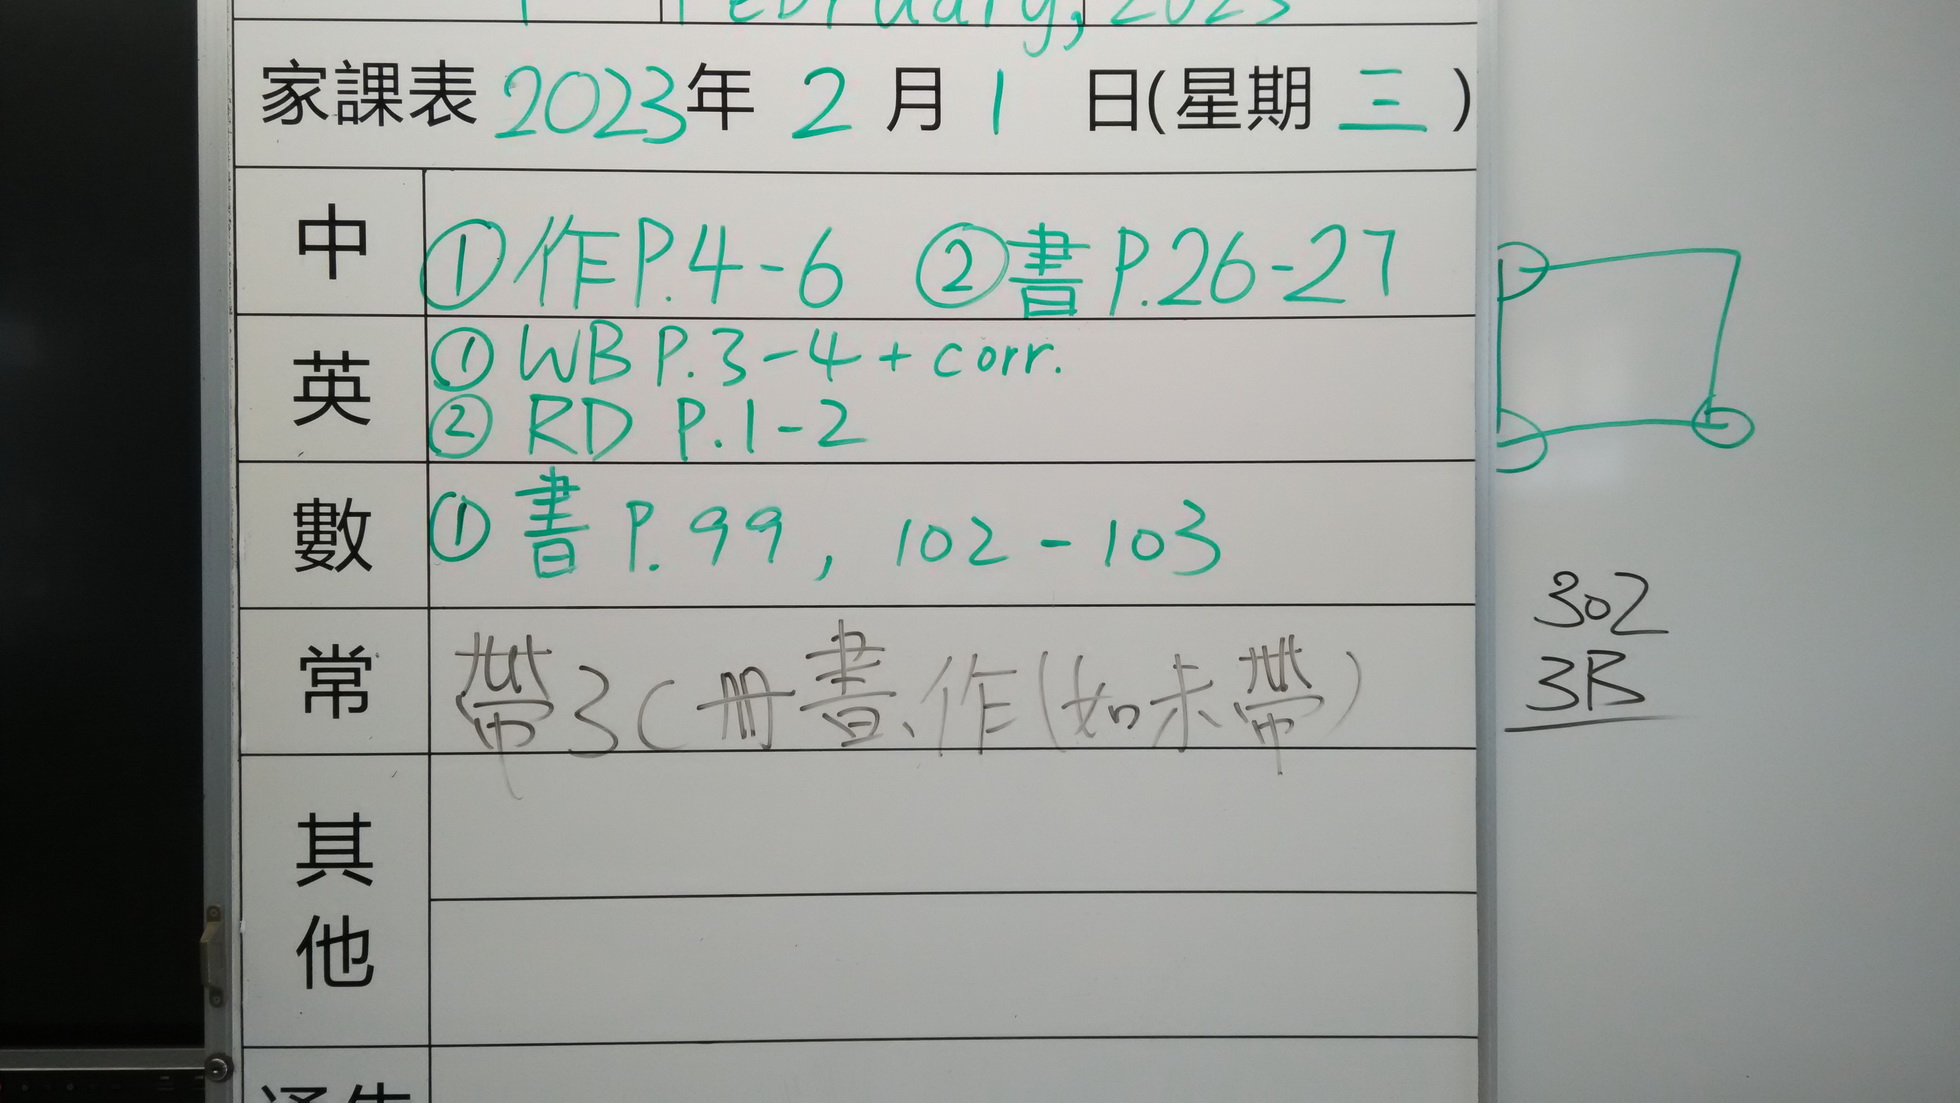 1 February, 2023
家課表 2023年 2 月 1 日(星期 三 )
中 ①作P.4-6 ②書P.26-27
英 ① WB P.3-4 + corr.
② RD P.1-2
數 ① 書 P.99, 102-103
常 帶3C冊書、作(如未帶)
其他
通告
302
3B